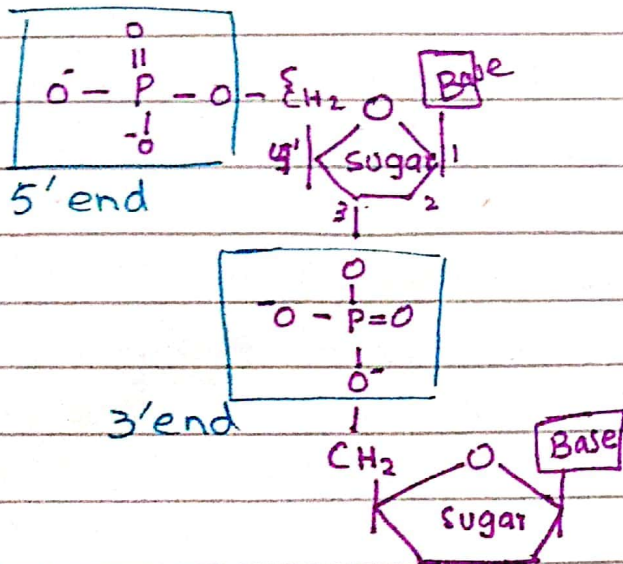 O
||
O⁻ — P — O — CH₂ O Base
|
⁻O
4' sugar 1
5' end
3 2
O
|
⁻O — P = O
|
O⁻
3' end
|
CH₂ O Base
sugar